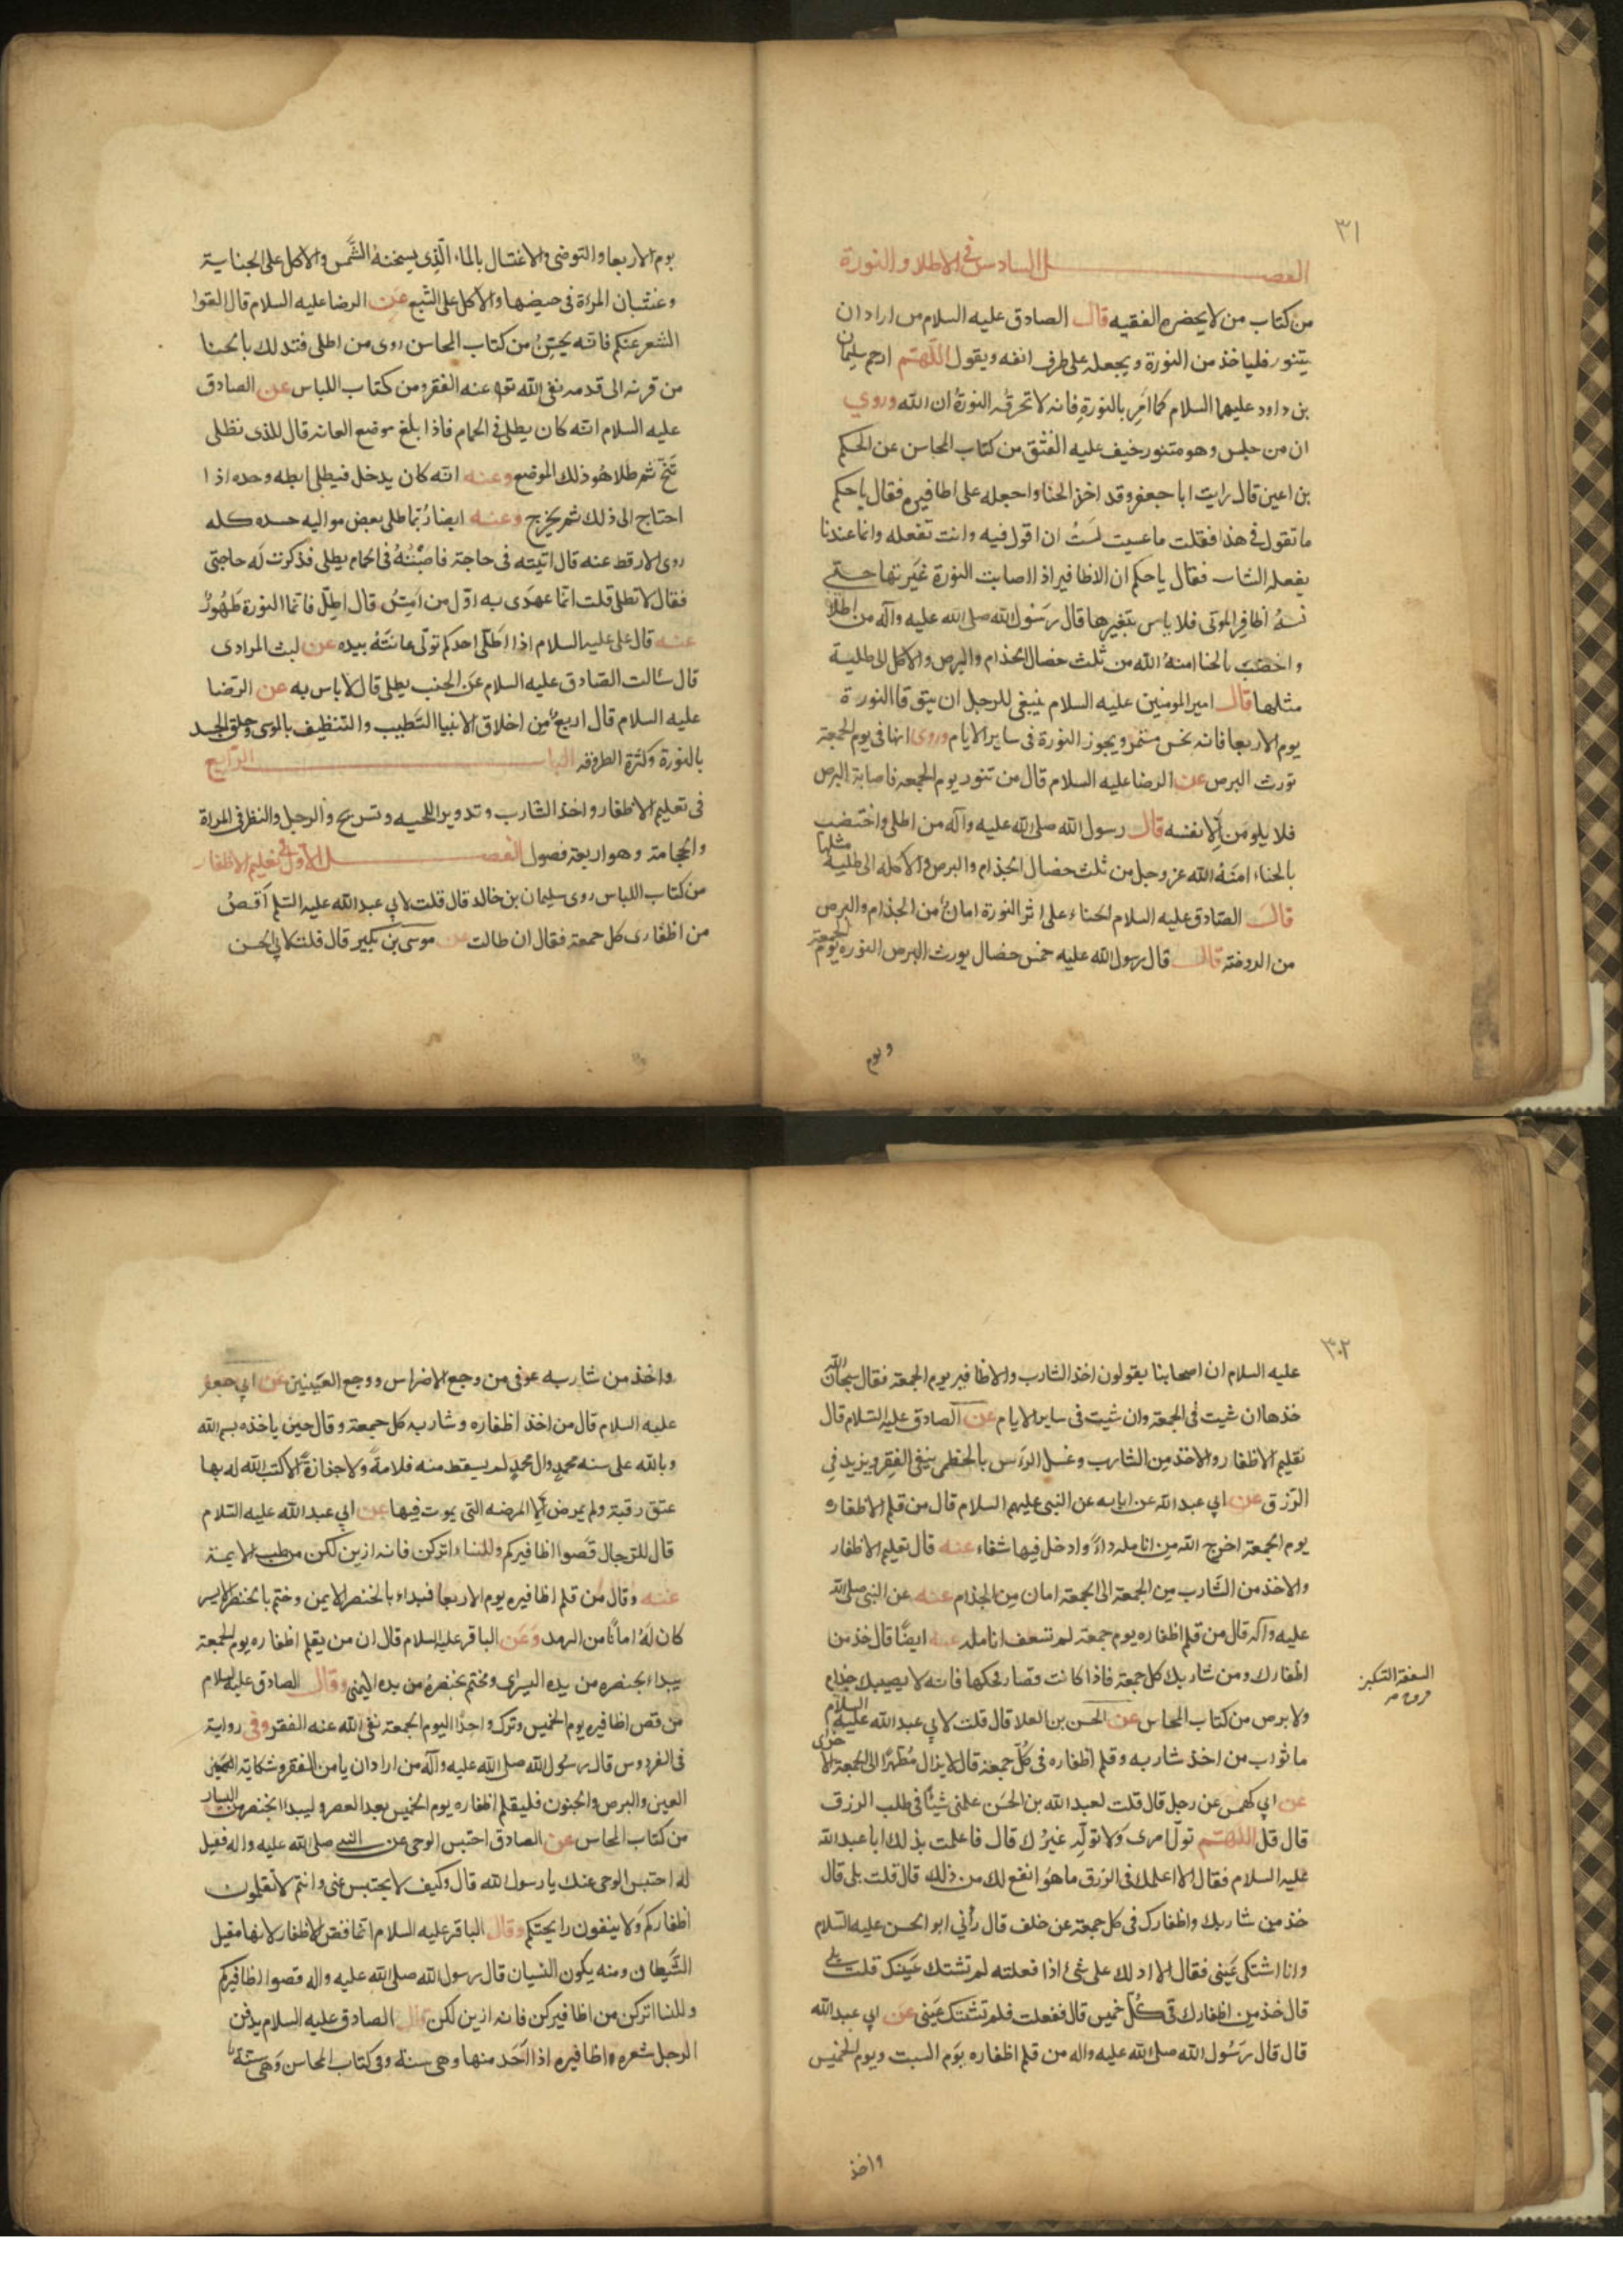 ٣١
الفصل السادس فى الاطلاء والنورة
من كتاب من لا يحضره الفقيه قال الصادق عليه السلام من اراد ان
يتنور فلياخذ من النورة ويجعله على طرف انفه ويقول اللهم ارحم سليمان
بن داود عليهما السلام كما امر بالنورة فانه لا تحرقه النورة ان الله وروي
ان من جلس وهو متنور خيف عليه الفتق من كتاب المحاسن عن الحكم
بن اعين قال رايت ابا جعفر وقد اخذ الحنا واجعله على اظافيره فقال يا حكم
ما تقول فى هذا فقلت ما عسيت ان اقول فيه وانت تفعله وانما عندنا
يفعله الشاب فقال يا حكم ان الاظافير اذا اصابت النورة غيرتها حتى
اظافر الموتى فلا باس بتغيرها قال رسول الله صلى الله عليه وآله من اطلا
واخضب بالحنا امنه الله من ثلث خصال الجذام والبرص والاكل الى طلية
مثلها قال امير المومنين عليه السلام ينبغى للرجل ان يتوقا النورة
يوم الاربعا فانه نحس مستمر ويجوز النورة فى ساير الايام وروى انها فى يوم الجمعة
تورث البرص عن الرضا عليه السلام قال من تنور يوم الجمعه فاصابة البرص
فلا يلومن الا نفسه قال رسول الله صلى الله عليه وآله من اطلى واختضب
بالحناء امنه الله عز وجل من ثلث خصال الجذام والبرص والاكله الى طلية مثلها
قال الصادق عليه السلام الحناء على اثر النورة امان من الجذام والبرص
من الروضة قال قال رسول الله عليه خمس خصال يورث البرص النوره يوم الجمعة
ويوم
يوم الاربعا والتوضى والاغتسال بالماء الذى يسخنه الشمس والاكل على الجنابة
وغشيان المرءة فى حيضها والاكل على الشبع عن الرضا عليه السلام قال القوا
الشعر عنكم فانه يحسن من كتاب المحاسن روى من اطلى فتدلك بالحنا
من قرنه الى قدمه نفى الله عنه الفقر ومن كتاب اللباس عن الصادق
عليه السلام انه كان يطلى فى الحمام فاذا بلغ موضع العانه قال للذى يطلى
تنح ثم طلا هو ذلك الموضع وعنه انه كان يدخل فيطلى ابطه وحده اذا
احتاج الى ذلك ثم يخرج وعنه ايضا ربما طلى بعض مواليه جسده كله
روى الارقط عنه قال اتيته فى حاجة فاصبته فى الحمام يطلى فذكرت له حاجتى
فقال لا تطلى قلت انما عهدى به اول من امس قال اطل فانما النورة طهور
عنه قال على عليه السلام اذا اطلى احدكم تولى عانته بيده عن ليث المرادى
قال سالت الصادق عليه السلام عن الجنب يطلى قال لا باس به عن الرضا
عليه السلام قال اربع من اخلاق الانبيا التطيب والتنظيف بالموسى وحلق الجسد
بالنورة وكثرة الطروقه الباب الرابع
فى تعليم الاظفار واخذ الشارب وتدوير اللحيه وتسريح والرجل والنظر فى المراة
والحجامة وهو اربعة فصول الفصل الاول فى تعليم الاظفار
من كتاب اللباس روى سليمان بن خالد قال قلت لابي عبد الله عليه السلم اقص
من اظفارى كل جمعة فقال ان طالت عن موسى بن بكير قال قلت لابي الحسن
٣٠٢
عليه السلام ان اصحابنا يقولون اخذ الشارب والاظافير يوم الجمعة فقال سبحان الله
خذها ان شيت فى الجمعة وان شيت فى ساير الايام عن الصادق عليه السلام قال
تقليم الاظفار والاخذ من الشارب وغسل الراس بالخطمى ينفى الفقر ويزيد في
الرزق عن ابي عبد الله عن ابايه عن النبى عليهم السلام قال من قلم الاظفاره
يوم الجمعة اخرج الله من انامله داءً وادخل فيها شفاء عنه قال تقليم الاظفار
والاخذ من الشارب من الجمعة الى الجمعة امان من الجذام عنه عن النبى صلى الله
عليه وآله قال من قلم اظفاره يوم جمعة لم تسعف انامله عنه ايضًا قال خذ من
اظفارك ومن شاربك كل جمعة فاذا كانت قصار فحكها فانه لا يصيبك جذام
ولا برص من كتاب المحاسن عن الحسن بن العلا قال قلت لابي عبد الله عليه السلام
ما ثواب من اخذ شاربه وقلم اظفاره فى كل جمعة قال لا يزال مطهرًا الى الجمعة الاخرى
عن ابي كهمس عن رجل قال قلت لعبد الله بن الحسن علمنى شيئًا فى طلب الرزق
قال قل اللهم تول امرى ولا تول غيرك قال فاعلمت بذلك ابا عبد الله
عليه السلام فقال الا اعلمك فى الرزق ما هو انفع لك من ذلك قال قلت بلى قال
خذ من شاربك واظفارك فى كل جمعة عن خلف قال رأنى ابو الحسن عليه السلام
وانا اشتكى عينى فقال الا ادلك على شئ اذا فعلته لم تشتك عينك قلت بلى
قال خذ من اظفارك فى كل خميس قال ففعلت فلم تشتك عينى عن ابي عبد الله
قال قال رسول الله صلى الله عليه واله من قلم اظفاره يوم السبت ويوم الخميس
السعفة التكبير
واخذ
واخذ من شاربه عوفى من وجع الاضراس ووجع العينين عن ابي جعفر
عليه السلام قال من اخذ اظفاره وشاربه كل جمعة وقال حين ياخذه بسم الله
وبالله على سنه محمد وال محمد لم يسقط منه قلامةً ولا جزازةً الا كتب الله له بها
عتق رقبة ولم يمرض الا المرضه التى يموت فيها عن ابي عبد الله عليه السلام
قال للرجال قصوا اظافيركم وللنساء اتركن فانه ازين لكن من طب الايمة
عنه وقال من قلم اظافيره يوم الاربعا فبداء بالخنصر الايمن وختم بالخنصر الايسر
كان له امانًا من الرمد وعن الباقر عليه السلام قال ان من يقلم اظفاره يوم الجمعة
يبداء بخنصره من يده اليسرى ويختم بخنصره من يده اليمنى وقال الصادق عليه السلام
من قص اظافيره يوم الخميس وترك واحدًا اليوم الجمعة نفى الله عنه الفقر وفى رواية
فى الفردوس قال رسول الله صلى الله عليه وآله من اراد ان يامن الفقر وشكاية
العين والبرص والجنون فليقلم اظفاره يوم الخميس بعد العصر وليبدا بخنصر من اليسار
من كتاب المحاسن عن الصادق احتبس الوحى عن النبى صلى الله عليه واله فقيل
له احتبس الوحى عنك يا رسول الله قال وكيف لا يحتبس عنى وانتم لا تقلمون
اظفاركم ولا ينقون رايحتكم وقال الباقر عليه السلام انما قص الاظفار لانها مقيل
الشيطان ومنه يكون النسيان قال رسول الله صلى الله عليه واله قصوا اظافيركم
وللنسا اتركن من اظافيركن فانه ازين لكن قال الصادق عليه السلام يدفن
الرجل شعره واظافيره اذا اخذ منها وهى سنة وفى كتاب المحاسن وهى سنة